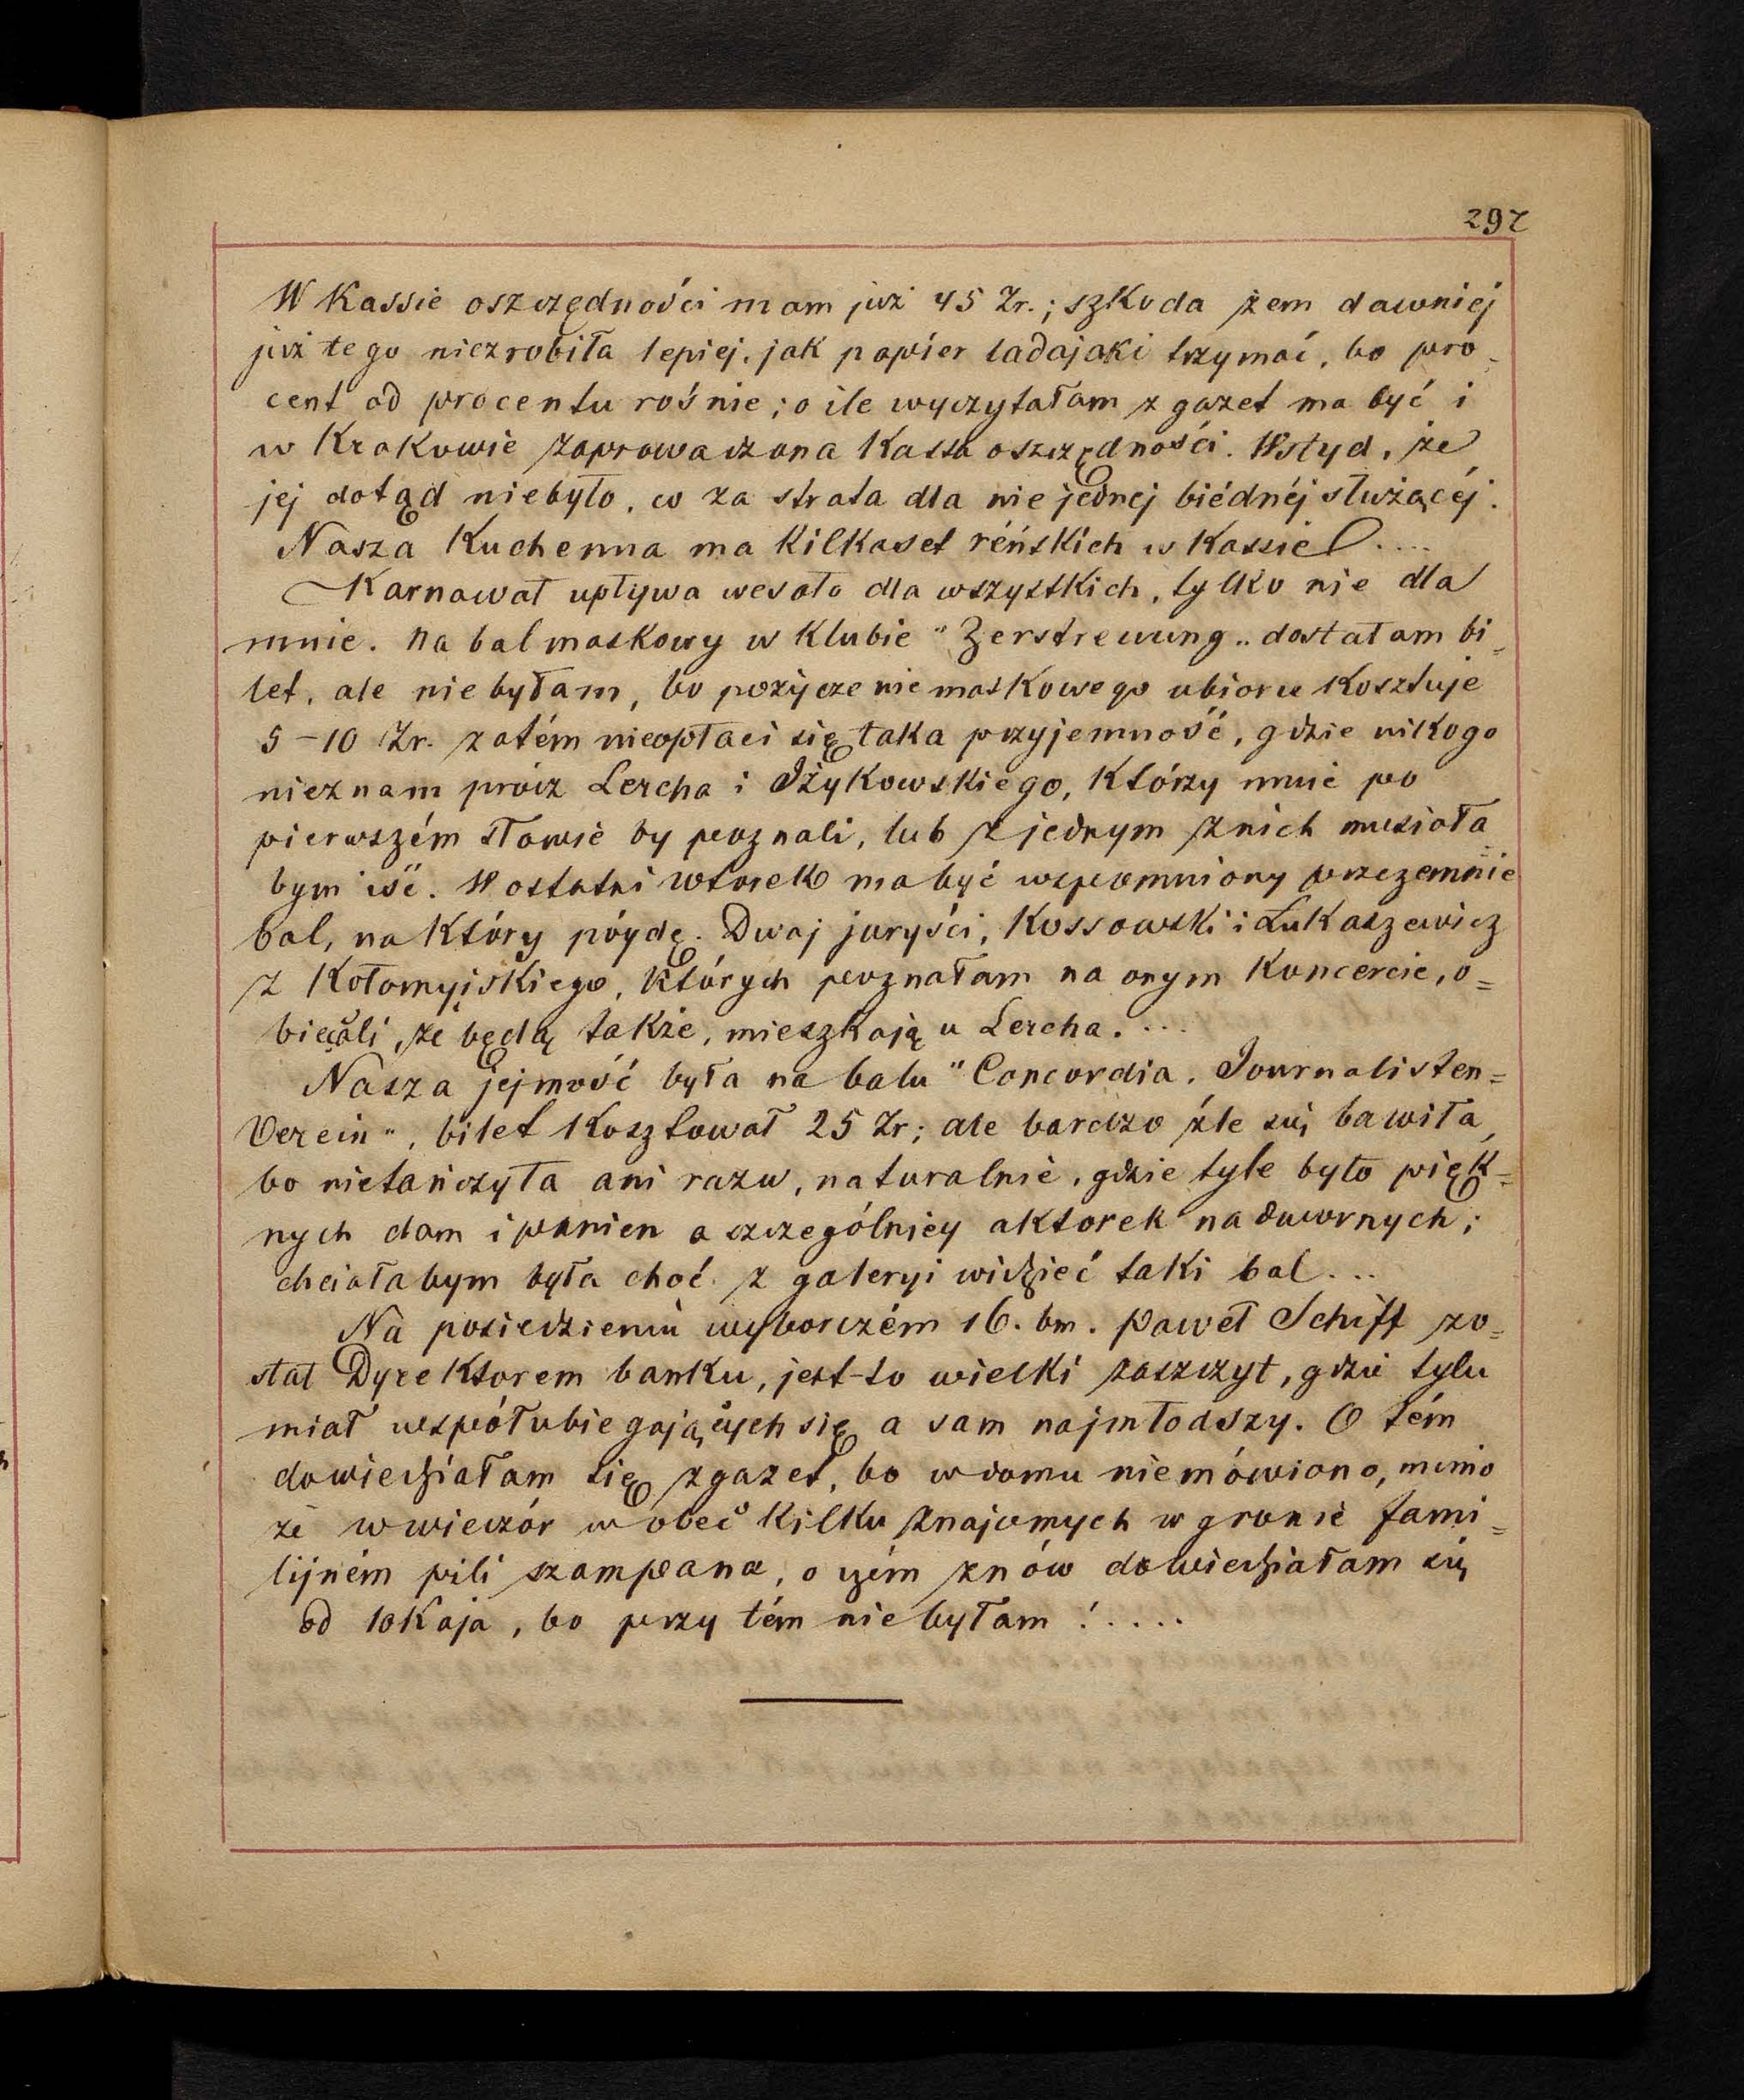 297
W Kassie oszczędności mam już 45 Zr.; szkoda żem dawniej
już tego niezrobiła lepiej, jak papier ladajaki trzymać, bo pro-
cent od procentu rośnie; o ile wyczytałam z gazet ma być i
w Krakowie zaprowadzona Kassa oszczędności. Wstyd, że
jej dotąd niebyło, co za strata dla nie jednej biédnéj służącéj.
Nasza Kuchenna ma kilkaset réńskich w Kassie ....
Karnawał upływa wesoło dla wszystkich, tylko nie dla
mnie. Na bal maskowy w Klubie "Zerstreuung" dostałam bi=
let, ale nie byłam, bo pożyczenie maskowego ubioru kosztuje
5-10 Zr. zatém nieopłaci się taka przyjemność, gdzie nikogo
nieznam prócz Lercha i Iżykowskiego, którzy mnie po
pierwszém słowie by poznali, lub z jednym z nich musiała=
bym iść. W ostatni wtorek ma być wspomniony przezemnie
bal, na który póydę. Dwaj juryści, Kossowski i Łukaszewicz
z Kołomyjskiego, których poznałam na onym koncercie, o=
biecali, że będą także, mieszkają u Lercha. ...
Nasza jejmość była na balu "Concordia, Journalisten=
Verein", bilet kosztował 25 Zr; ale bardzo źle się bawiła,
bo nietańczyła ani razu, naturalnie, gdzie tyle było pięk=
nych dam i panien a szczególniey aktorek nadwornych;
chciałabym była choć z galeryi widzieć taki bal...
Na posiedzeniu wyborczém 16. bm. Paweł Schiff zo=
stał Dyrektorem banku, jest-to wielki zaszczyt, gdzie tylu
miał współubiegających się a sam najmłodszy. O tém
dowiedziałam się z gazet, bo w domu niemówiono, mimo
że w wieczór w obec kilku znajomych w gronie fami=
lijném pili szampana, o czém znów dowiedziałam się
od lokaja, bo przy tém nie byłam!....